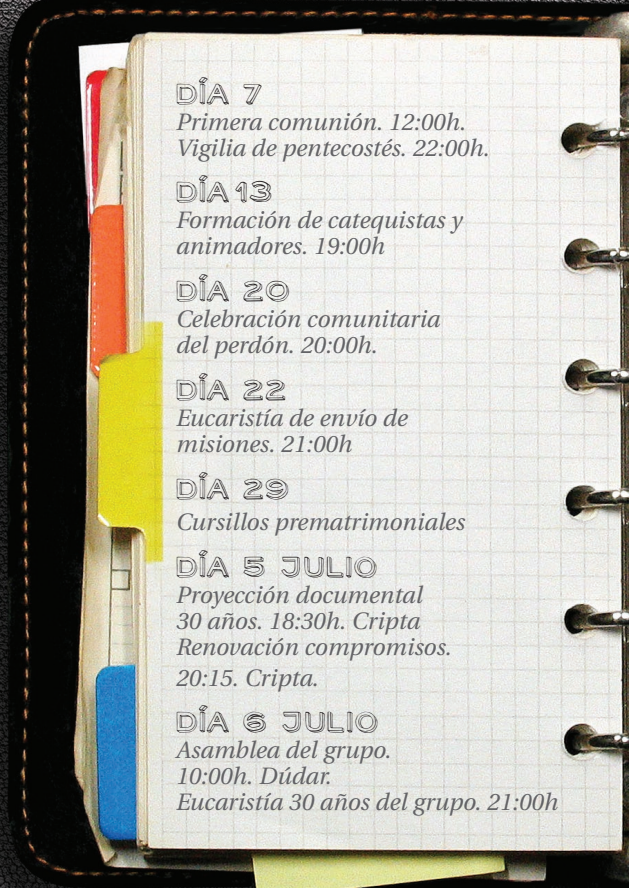 DÍA 7
Primera comunión. 12:00h.
Vigilia de pentecostés. 22:00h.
DÍA 13
Formación de catequistas y
animadores. 19:00h
DÍA 20
Celebración comunitaria
del perdón. 20:00h.
DÍA 22
Eucaristía de envío de
misiones. 21:00h
DÍA 29
Cursillos prematrimoniales
DÍA 5 JULIO
Proyección documental
30 años. 18:30h. Cripta
Renovación compromisos.
20:15. Cripta.
DÍA 6 JULIO
Asamblea del grupo.
10:00h. Dúdar.
Eucaristía 30 años del grupo. 21:00h